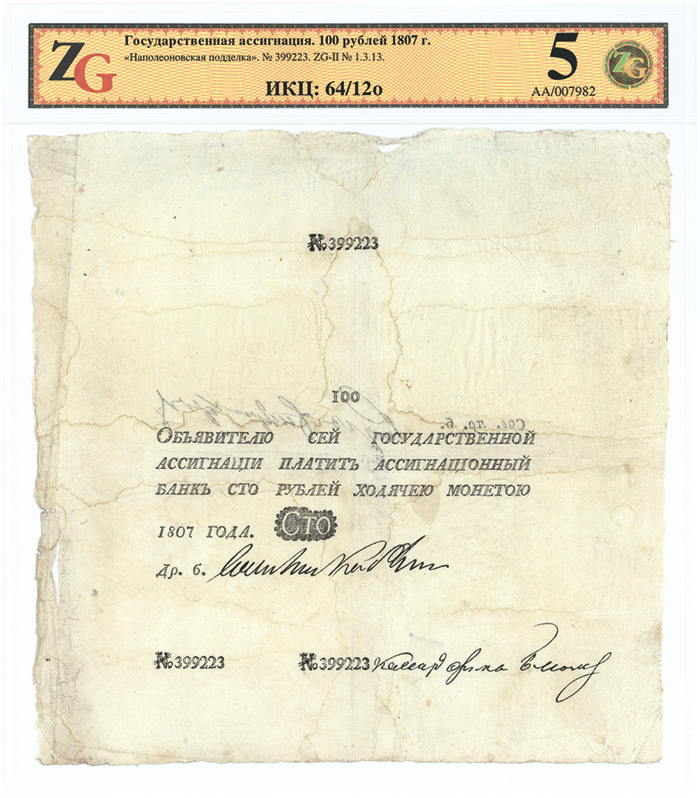 ZG
Государственная ассигнация. 100 рублей 1807 г.
«Наполеоновская подделка». № 399223. ZG-II № 1.3.13.
ИКЦ: 64/12о
5
ZG
АА/007982
№399223
100
Сов. пр. б.
ОБЪЯВИТЕЛЮ СЕЙ ГОСУДАРСТВЕННОЙ
АССИГНАЦІИ ПЛАТИТЪ АССИГНАЦІОННЫЙ
БАНКЪ СТО РУБЛЕЙ ХОДЯЧЕЮ МОНЕТОЮ
1807 ГОДА. СТО
Др. б.
№399223 №399223